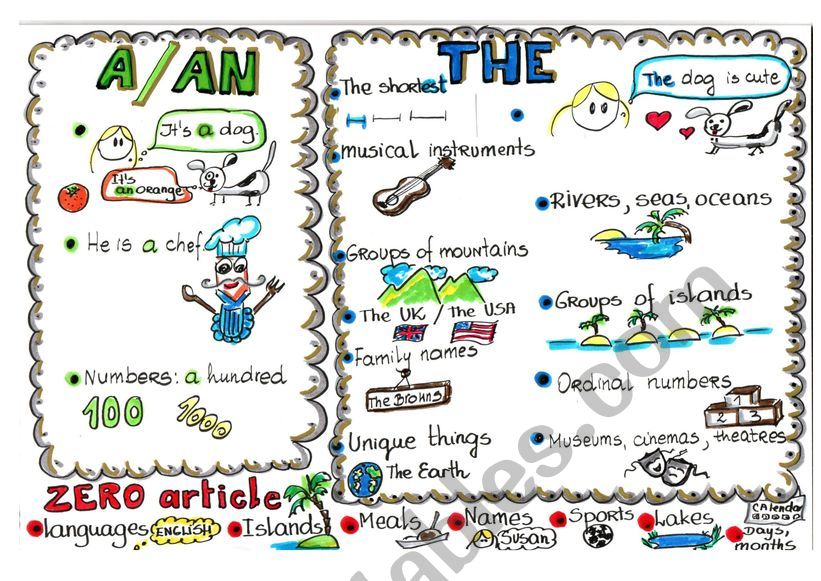 A/AN
It's a dog.
It's
an orange
He is a chef.
Numbers: a hundred
100
1000
THE
The shortest
musical instruments
Groups of mountains
The UK / the USA
Family names
The Browns
Unique things
The Earth
The dog is cute
Rivers, seas, oceans
Groups of islands
Ordinal numbers
1
2 3
Museums, cinemas, theatres
ZERO article
languages ENGLISH
Islands
Meals
Names
Susan
Sports
Lakes
Calendar
Days,
months